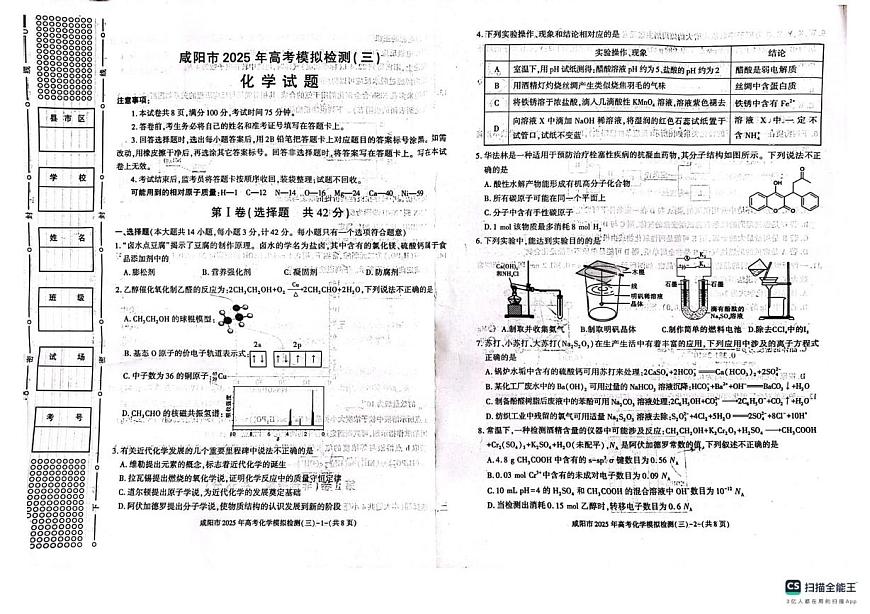 县 市 区
学 校
姓 名
班 级
试 场
考 号
咸阳市2025年高考模拟检测(三)
化 学 试 题
注意事项:
1.本试卷共8页,满分100分,考试时间75分钟。
2.答卷前,考生务必将自己的姓名和准考证号填写在答题卡上。
3.回答选择题时,选出每小题答案后,用2B铅笔把答题卡上对应题目的答案标号涂黑。如需
改动,用橡皮擦干净后,再选涂其它答案标号。回答非选择题时,将答案写在答题卡上。写在本试
卷上无效。
4.考试结束后,监考员将答题卡按顺序收回,装袋整理;试题不回收。
可能用到的相对原子质量:H—1 C—12 N—14 O—16 Mg—24 Ca—40 Ni—59
第Ⅰ卷(选择题 共42分)
一、选择题(本大题共14小题,每小题3分,计42分。每小题只有一个选项符合题意)
1.“卤水点豆腐”揭示了豆腐的制作原理。卤水的学名为盐卤,其中含有的氯化镁、硫酸钙属于食
品添加剂中的
A.膨松剂 B.营养强化剂 C.凝固剂 D.防腐剂
2.乙醇催化氧化制乙醛的反应为:2CH₃CH₂OH+O₂ Cu △ 2CH₃CHO+2H₂O,下列说法不正确的是
A.CH₃CH₂OH的球棍模型:
B.基态O原子的价电子轨道表示式: 2s 2p
C.中子数为36的铜原子:
D.CH₃CHO的核磁共振氢谱:
吸收强度
10 8 6 4 2 0
3.有关近代化学发展的几个重要里程碑中说法不正确的是
A.维勒提出元素的概念,标志着近代化学的诞生
B.拉瓦锡提出燃烧的氧化学说,证明化学反应中的质量守恒定律
C.道尔顿提出原子学说,为近代化学的发展奠定基础
D.阿伏加德罗提出分子学说,使物质结构的认识发展到新的阶段
咸阳市2025年高考化学模拟检测(三)-1-(共8页)
4.下列实验操作、现象和结论相对应的是
实验操作、现象 结论
A 室温下,用pH试纸测得:醋酸溶液pH约为5,盐酸的pH约为2 醋酸是弱电解质
B 用酒精灯灼烧丝绸产生类似烧焦羽毛的气味 丝绸中含蛋白质
C 将铁锈溶于浓盐酸,滴入几滴酸性KMnO₄溶液,溶液紫色褪去 铁锈中含有Fe²⁺
D 向溶液X中滴加NaOH稀溶液,将湿润的红色石蕊试纸置于
试管口,试纸不变蓝
溶液X中一定不
含NH₄⁺
5.华法林是一种适用于预防治疗栓塞性疾病的抗凝血药物,其分子结构如图所示。下列说法不正
确的是
A.酸性水解产物能形成有机高分子化合物
B.所有碳原子可能在同一个平面上
C.分子中含有手性碳原子
D.1 mol该物质最多消耗8 mol H₂
OH
O
O
O
6.下列实验中,能达到实验目的的是
Ca(OH)₂
和NH₄Cl
木棍
线
明矾稀溶液
晶体
K₁
石墨
石墨
滴有酚酞的
Na₂SO₄溶液
A.制取并收集氨气 B.制取明矾晶体 C.制作简单的燃料电池 D.除去CCl₄中的I₂
7.苏打、小苏打、大苏打(Na₂S₂O₃)在生产生活中有着丰富的应用,下列应用中涉及的离子方程式
正确的是
A.锅炉水垢中含有的硫酸钙可用苏打来处理:
B.某化工厂废水中的Ba(OH)₂可用过量的NaHCO₃溶液沉降:HCO₃⁻+Ba²⁺+OH⁻═BaCO₃↓+H₂O
C.制备酚醛树脂后废液中的苯酚可用Na₂CO₃溶液处理:
D.纺织工业中残留的氯气可用适量Na₂S₂O₃溶液去除:S₂O₃²⁻+4Cl₂+5H₂O═2SO₄²⁻+8Cl⁻+10H⁺
8.常温下,一种检测酒精含量的仪器中可能涉及反应:CH₃CH₂OH+K₂Cr₂O₇+H₂SO₄→CH₃COOH
+Cr₂(SO₄)₃+K₂SO₄+H₂O(未配平),Nₐ是阿伏加德罗常数的值,下列叙述不正确的是
A.4.8 g CH₃COOH中含有的s-sp³ σ键数目为0.56 Nₐ
B.0.03 mol Cr³⁺中含有的未成对电子数目为0.09 Nₐ
C.10 mL pH=4的H₂SO₄和CH₃COOH的混合溶液中OH⁻数目为10⁻¹² Nₐ
D.当检测出消耗0.15 mol乙醇时,转移电子数目为0.6 Nₐ
咸阳市2025年高考化学模拟检测(三)-2-(共8页)
CS 扫描全能王
3亿人都在用的扫描App